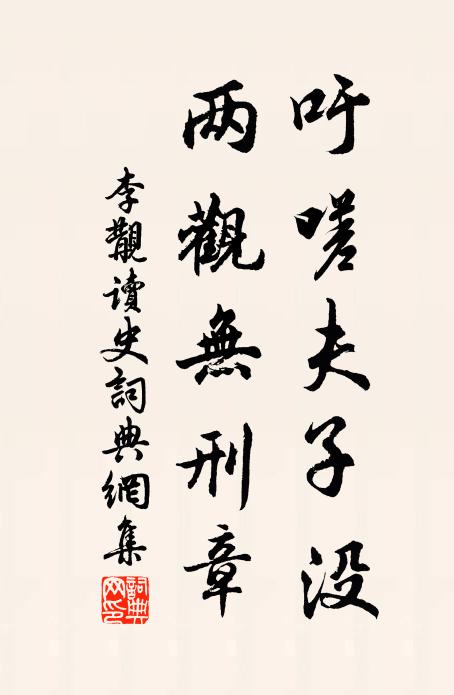 吁嗟夫子没
两觀無刑章
李覯讀史詞典網集
詞典网印